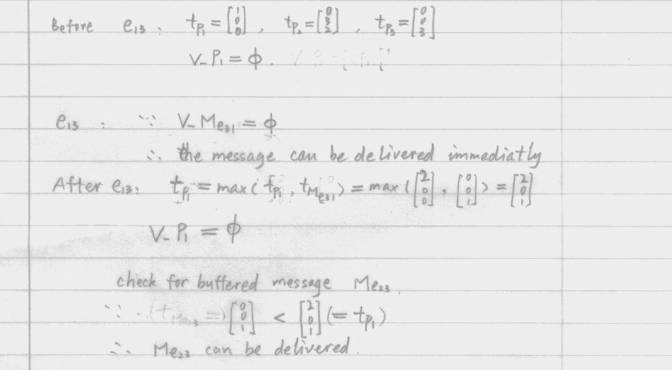 Before e₁₃. t_P₁ = [1 0 0], t_P₂ = [0 3 2], t_P₃ = [0 0 3]
V_P₁ = ϕ.
e₁₃ : ∵ V_Me₃₁ = ϕ
∴ the message can be delivered immediatly
After e₁₃. t_P₁ = max(t_P₁, t_Me₃₁) = max([2 0 0], [0 0 1]) = [2 0 1]
V_P₁ = ϕ
check for buffered message Me₂₂.
∵ [0 0 1] < [2 0 1] (= t_P₁)
∴ Me₂₂ can be delivered.